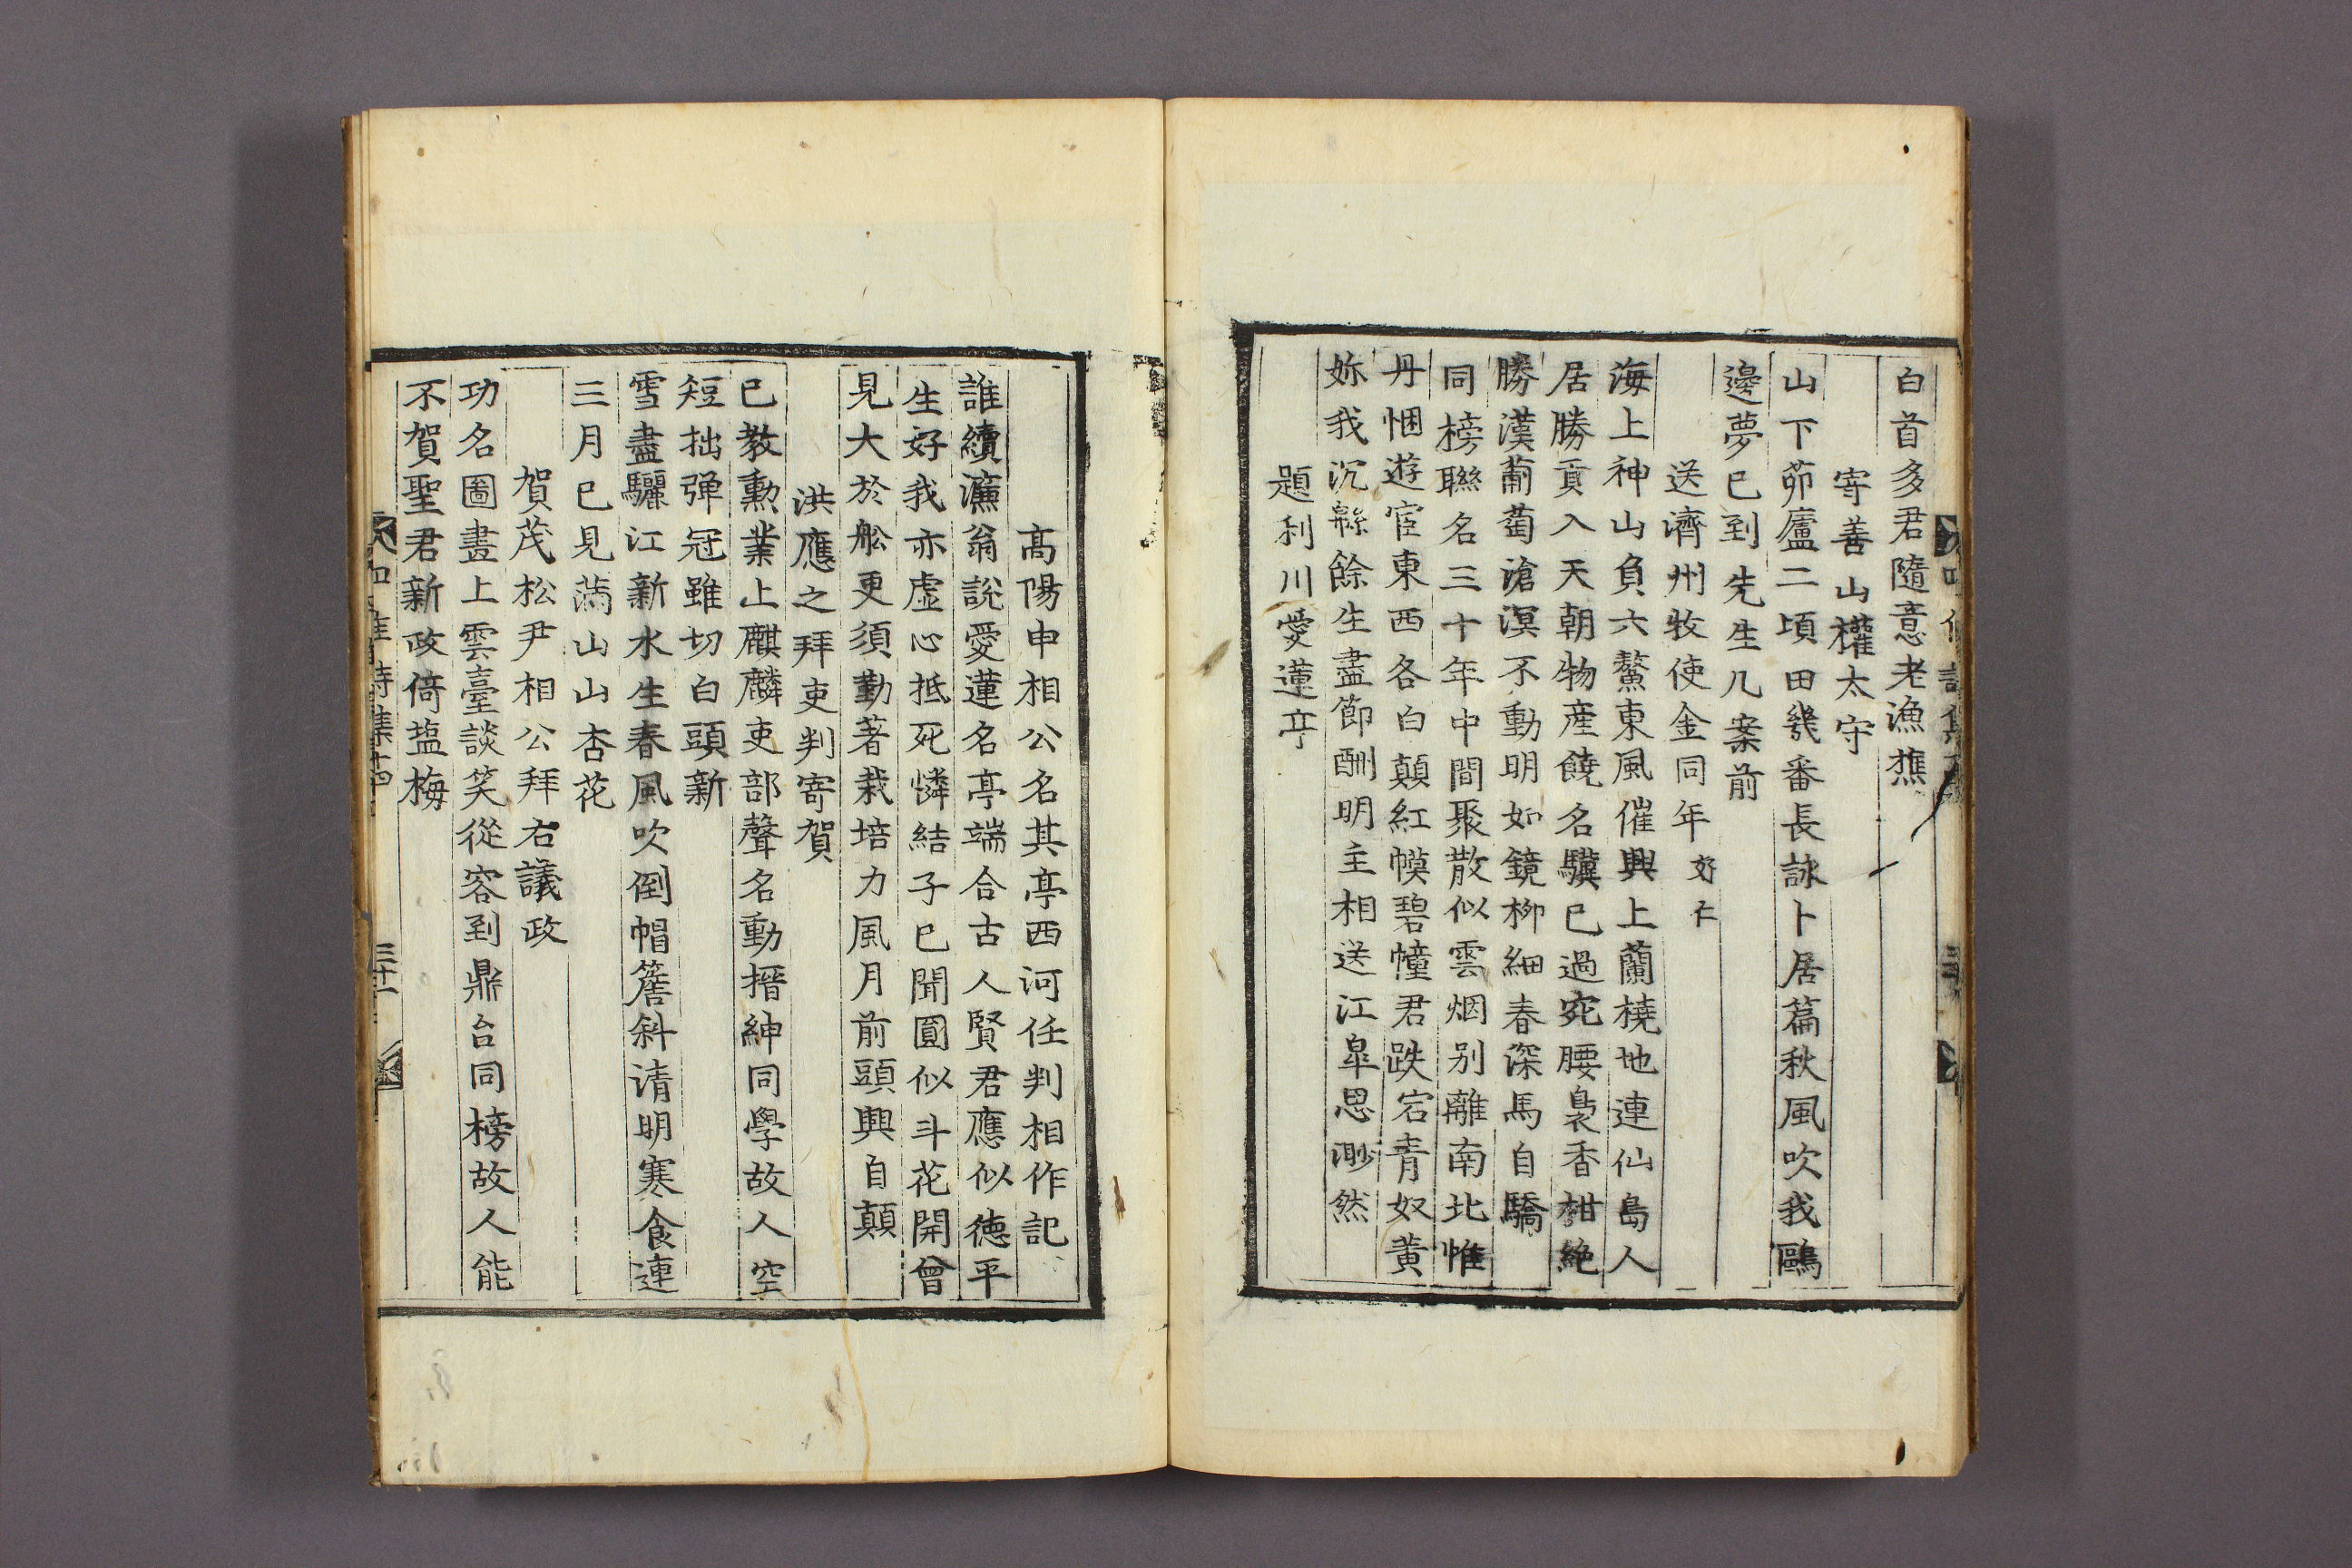 白首多君隨意老漁樵
寄善山權太守
山下茆廬二頃田幾番長詠卜居篇秋風吹我鷗
邊夢已到先生几案前
送濟州牧使金同年好仁
海上神山負六鰲東風催興上蘭橈地連仙島人
居勝貢入天朝物產饒名驥已過窕腰裊香柑絶
勝漢萄萄滄溟不動明如鏡柳細春深馬自驕
同榜聯名三十年中間聚散似雲烟别離南北惟
丹悃遊宦東西各白顛紅幙碧幢君跌宕青奴黃
妳我沉緜餘生盡節酬明主相送江皐思渺然
題利川愛蓮亭
高陽申相公名其亭西河任判相作記
誰續濂翁說愛蓮名亭端合古人賢君應似德平
生好我亦虛心抵死憐結子已聞圓似斗花開曾
見大於舩更須勤著栽培力風月前頭興自顛
洪應之拜吏判寄賀
已教勳業上麒麟吏部聲名動搢紳同學故人空
短拙彈冠雖切白頭新
雪盡驪江新水生春風吹倒帽簷斜清明寒食連
三月已見滿山山杏花
賀茂松尹相公拜右議政
功名圖畫上雲臺談笑從容到鼎台同榜故人能
不賀聖君新政倚塩梅
詩集十四
三十一